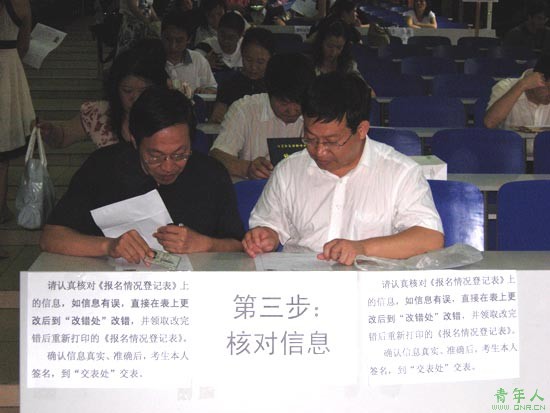 请认真核对《报名情况登记表》上
的信息，如信息有误，直接在表上更
改后到“改错处”改错，并领取改完
错后重新打印的《报名情况登记表》。
确认信息真实、准确后，考生本人
签名，到“交表处”交表。
第三步：
核对信息
请认真核对《报名情况登记表》上
的信息，如信息有误，直接在表上更
改后到“改错处”改错，并领取改完
错后重新打印的《报名情况登记表》。
确认信息真实、准确后，考生本人
签名，到“交表处”交表。
青年人
WWW.QNR.CN